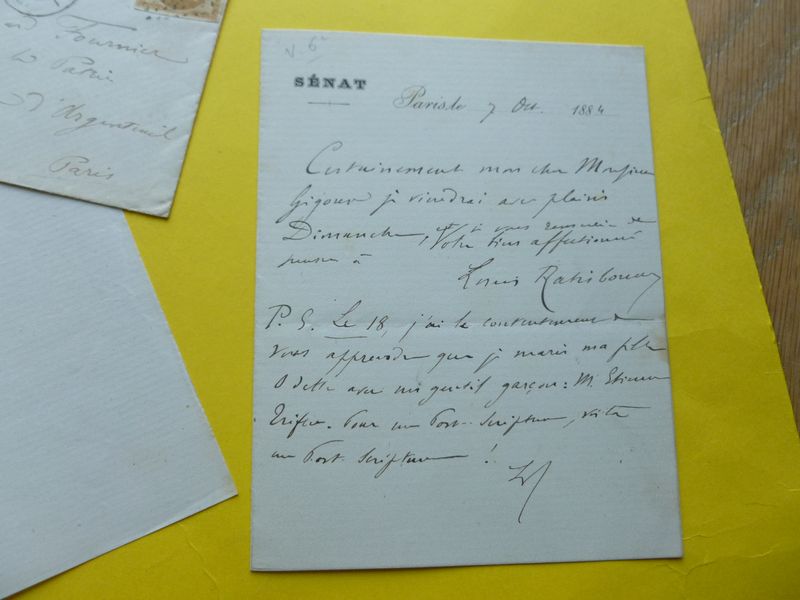 Fournier
La Patrie
d'Argenteuil
Paris
V. 6e
SÉNAT
Paris, le 7 Oct. 1884
Certainement mon cher Monsieur
Gigoux je viendrai avec plaisir
Dimanche, et à vous remercie de
penser à
Votre bien affectionné
Louis Ratisbonne
P. S. Le 18, j'ai le contentement de
vous apprendre que je marie ma fille
Odette avec un gentil garçon : M. Etienne
Pour un Post-Scriptum, voilà
un Post-Scriptum !
LR